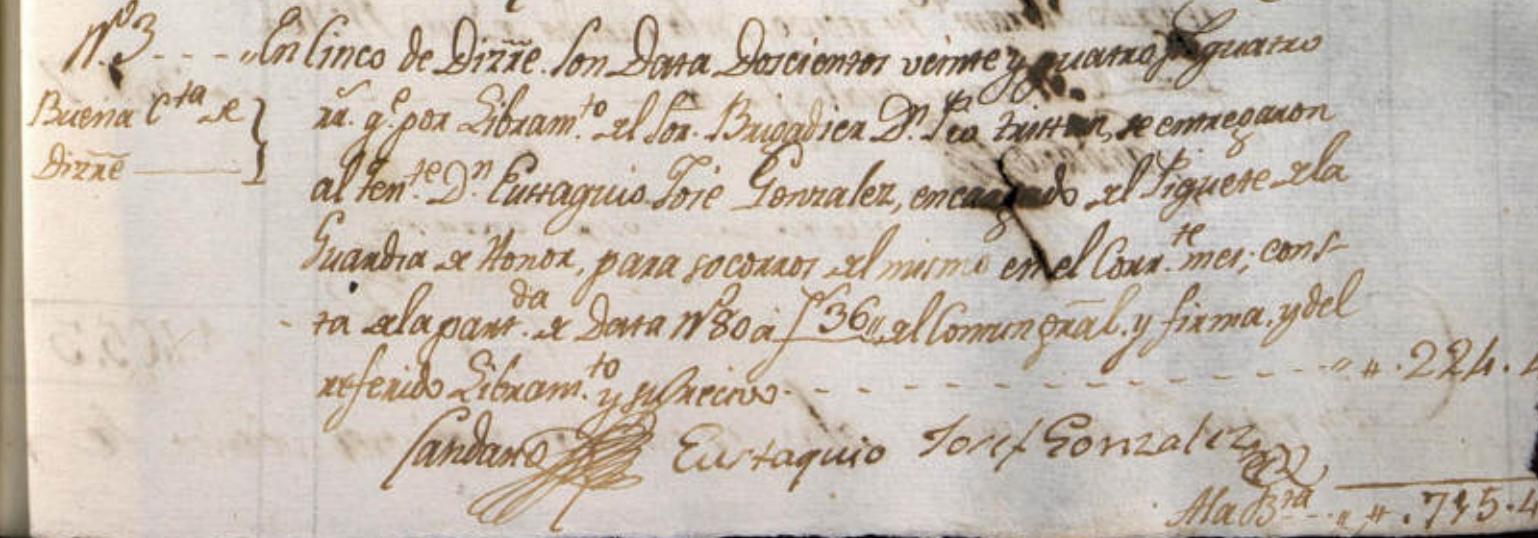 N.º 3 - - - „En Cinco de Dizñe. Son Data Doscientos veinte y quatro p.s quatro
Buena C.ta de
rr.s q.e por Libram.to del Sor. Brigadier D.n Pio Tristan, se entregaron
Dizñe
al ten.te D.n Eustaquio José Gonzalez, encargado del Piquete dela
Guardia de Honor, para socorros del mismo en el Corr.te mes; cons-
ta dela part.da de Data N.º 80 á f 36 „ del Comun gñal. y firma. y del
referido Libram.to y su recivo - - - - - - - - - „ # . 224 . 4
Candano Eustaquio Josef Gonzalez
Ala B.ta - - . „ # . 735 . 4